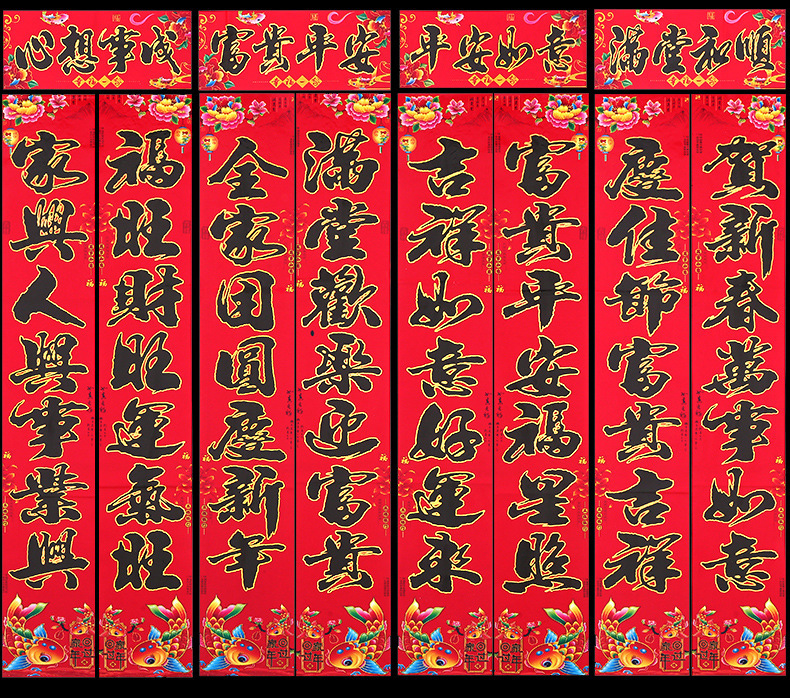 心想事成
家興人興事業興
福旺財旺運氣旺
富貴平安
全家团圓慶新年
滿堂歡樂迎富貴
平安如意
吉祥如意好運來
富貴平安福星照
滿堂和順
慶佳節富貴吉祥
賀新春萬事如意